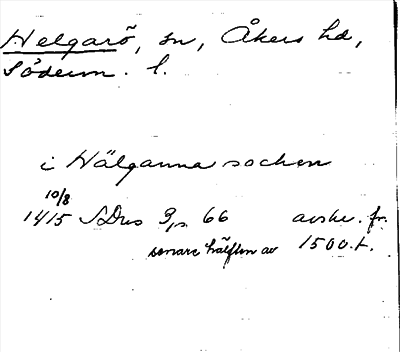 Helgarö, sn, Åkers hd,
Söderm. l.
i Hälganna sochen
10/8
1415 SDns 3, s. 66 avskr. fr.
senare hälften av 1500-t.